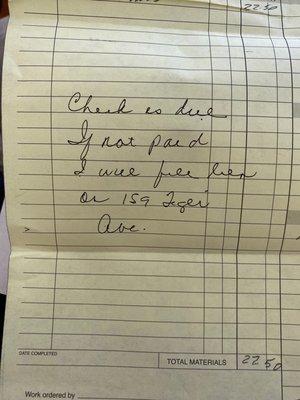 22 50
Check is due
If not paid
I will file lien
on 159 Tiger
Ave.
DATE COMPLETED
TOTAL MATERIALS 22 50
Work ordered by